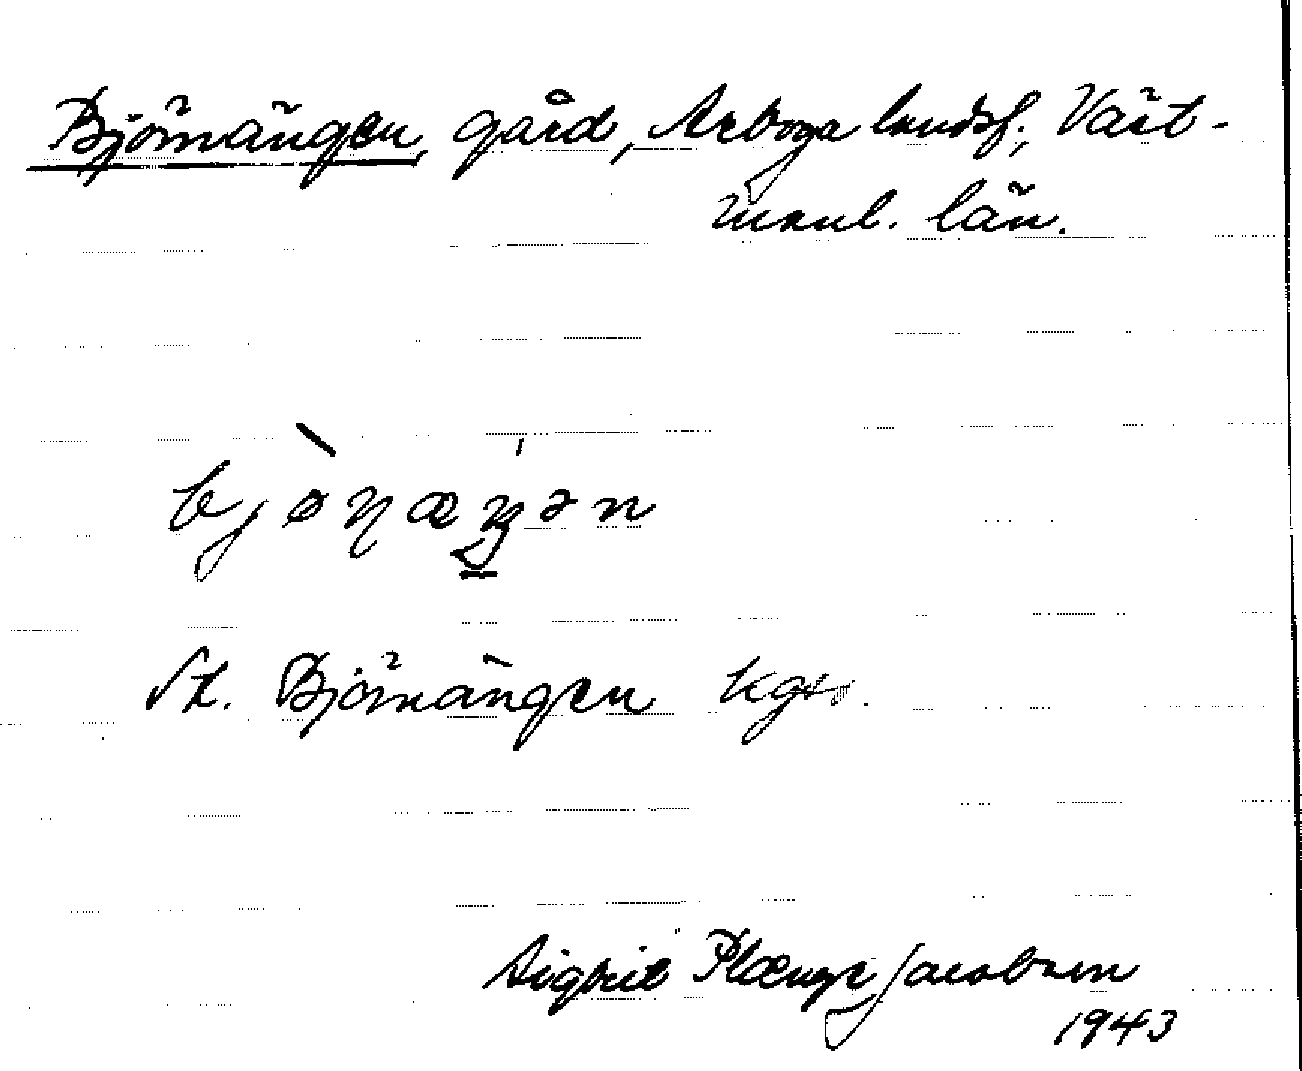 Björnängen, gård, Arboga landsf., Väst-
manl. län.
bjònæŋən
St. Björnängen kgtr.
Sigbrit Plænge Jacobson
1943